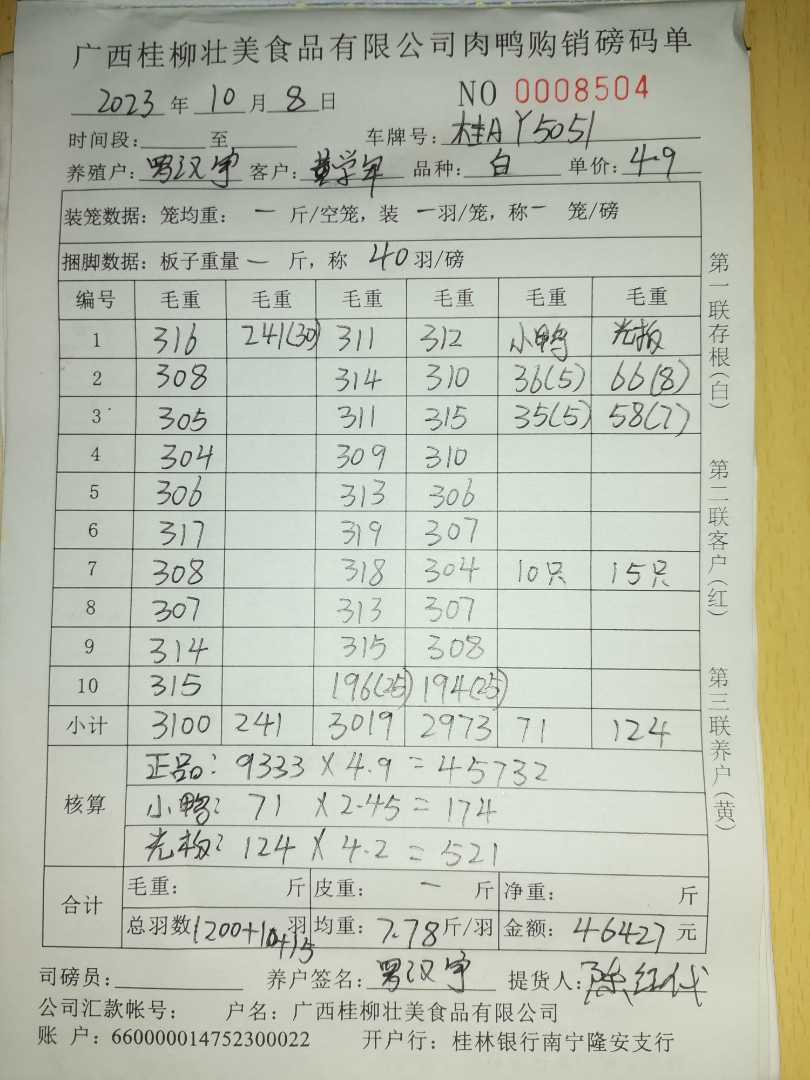 广西桂柳壮美食品有限公司肉鸭购销磅码单
2023 年 10 月 8 日 NO 0008504
时间段: 至 车牌号: 桂A Y5051
养殖户: 罗汉宇 客户: 黄学军 品种: 白 单价: 4.9
装笼数据: 笼均重: 一 斤/空笼, 装 一 羽/笼, 称 一 笼/磅
捆脚数据: 板子重量 一 斤, 称 40 羽/磅
编号 毛重 毛重 毛重 毛重 毛重 毛重
1 316 241(30) 311 312 小鸭 光板
2 308 314 310 36(5) 66(8)
3 305 311 315 35(5) 58(7)
4 304 309 310
5 306 313 306
6 317 319 307
7 308 318 304 10只 15只
8 307 313 307
9 314 315 308
10 315 196(25) 194(25)
小计 3100 241 3019 2973 71 124
核算
正品: 9333 × 4.9 = 45732
小鸭: 71 × 2.45 = 174
光板: 124 × 4.2 = 521
合计
毛重: 斤 皮重: 一 斤 净重: 斤
总羽数 1200+10+15 羽 均重: 7.78 斤/羽 金额: 46427 元
司磅员: 养户签名: 罗汉宇 提货人:
公司汇款帐号: 户名: 广西桂柳壮美食品有限公司
账 户: 660000014752300022 开户行: 桂林银行南宁隆安支行
第一联存根(白)
第二联客户(红)
第三联养户(黄)